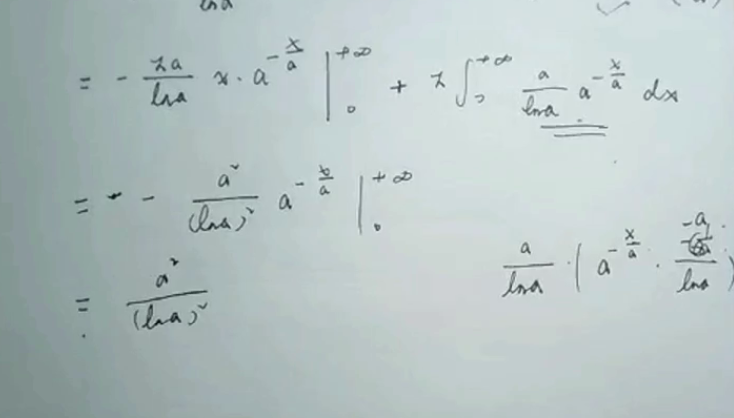 ln a
= - \frac{xa}{\ln a} x \cdot a^{-\frac{x}{a}} |_0^{+\infty} + x \int_0^{+\infty} \frac{a}{\ln a} a^{-\frac{x}{a}} dx
= - \frac{a^2}{(\ln a)^2} a^{-\frac{x}{a}} |_0^{+\infty}
\frac{a}{\ln a} \cdot ( a^{-\frac{x}{a}} \cdot \frac{-a}{\ln a} )
= \frac{a^2}{(\ln a)^2}